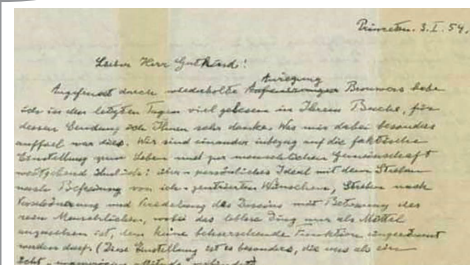 Princeton. 3. I. 54.
Lieber Herr Gutkind!
Anregung
Angefeuert durch wiederholte Brouwers habe
ich in den letzten Tagen viel gelesen in Ihrem Buche, für
dessen Sendung ich Ihnen sehr danke. Was mir dabei besonders
auffiel war dies. Wir sind einander inbezug auf die faktische
Einstellung zum Leben und zur menschlichen Gemeinschaft
weitgehend ähnlich: persönliches Ideal mit dem Streben
nach Befreiung von ich-zentrierten Wünschen, Streben nach
Verschönerung und Veredelung des Daseins mit Betonung des
rein Menschlichen, wobei das leblose Ding nur als Mittel
anzusehen ist, dem keine beherrschende Funktion eingeräumt
werden darf. (Diese Einstellung ist es besonders, die uns als ein